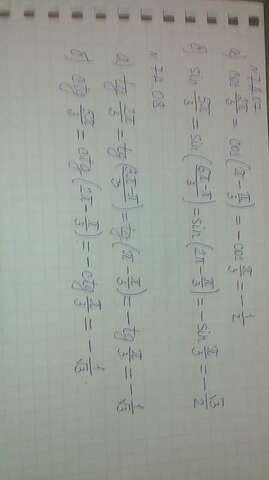 № 7А.07
а) cos 2π/3 = cos(π - π/3) = -cos π/3 = -1/2
б) sin 5π/3 = sin(6π-π/3) = sin(2π - π/3) = -sin π/3 = -√3/2
№ 7А.08
а) tg 2π/3 = tg(3π-π/3) = tg(π - π/3) = -tg π/3 = -1/√3
б) ctg 5π/3 = ctg(2π - π/3) = -ctg π/3 = -1/√3.